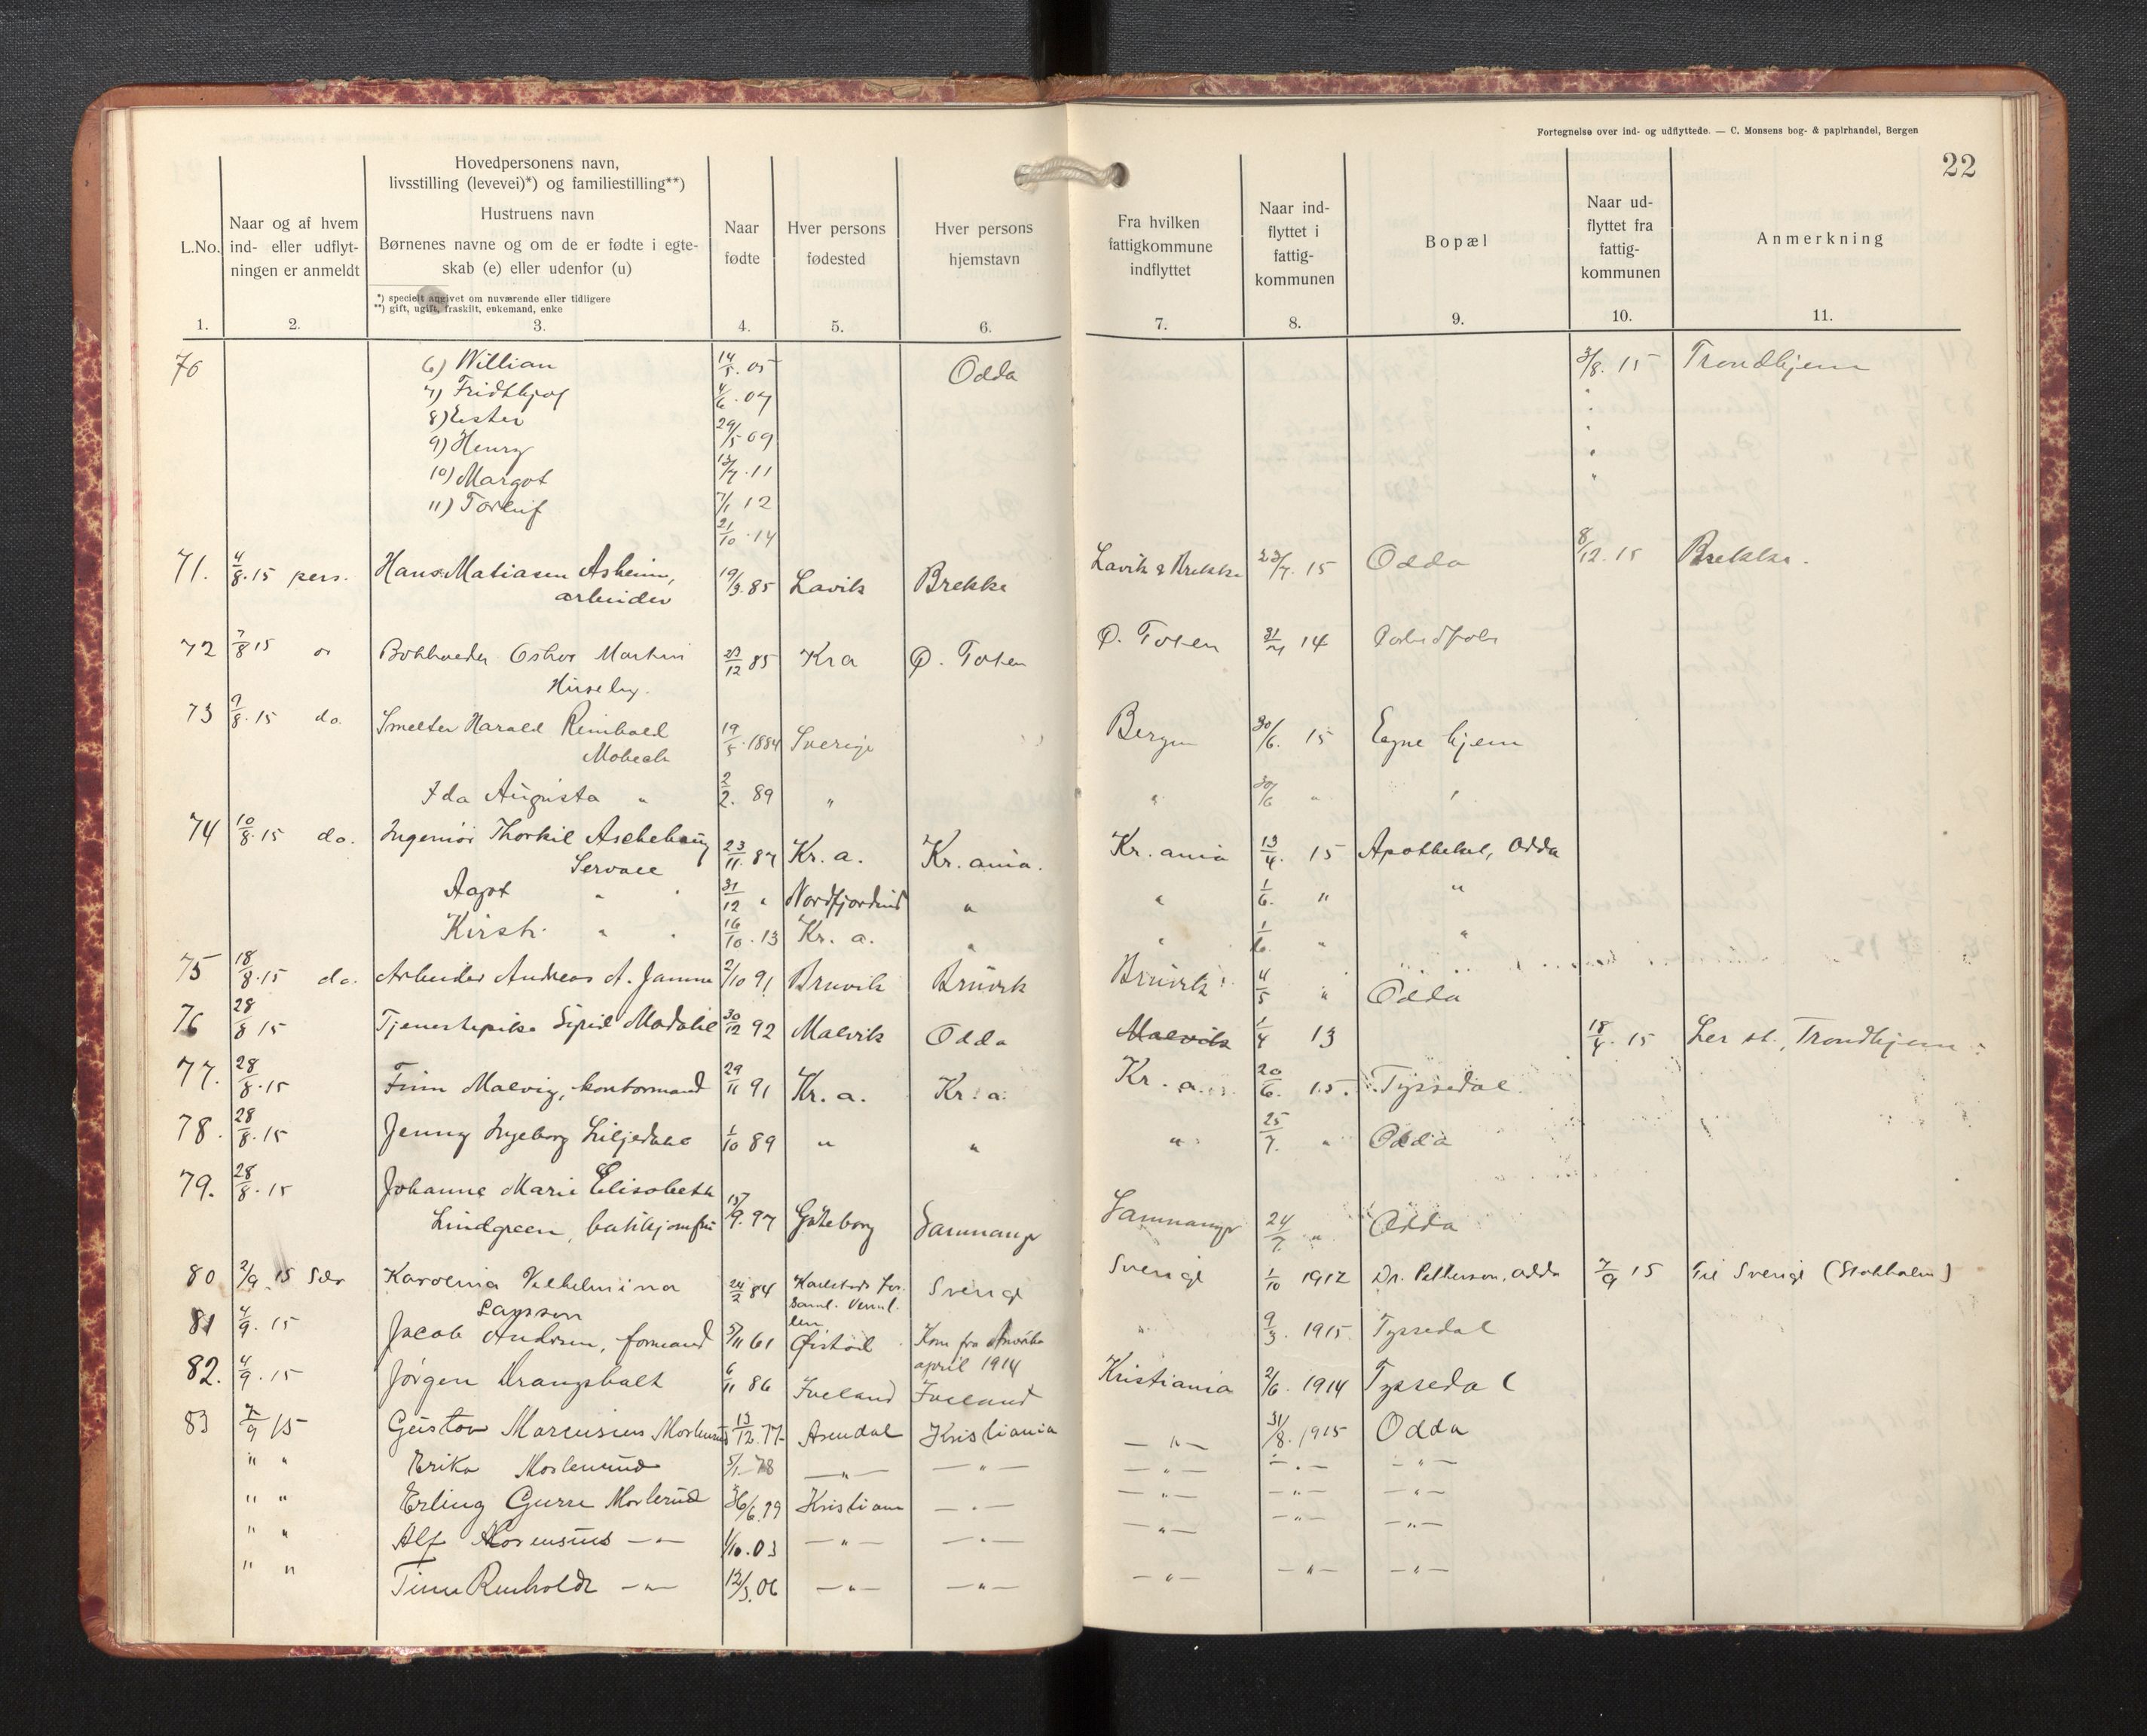 Fortegnelse over ind- og udflyttede. — C. Monsens bog- & papirhandel, Bergen
22
L.No.
1.
Naar og af hvem
ind- eller udflyt-
ningen er anmeldt
2.
Hovedpersonens navn,
livsstilling (levevei)*) og familiestilling**)
Hustruens navn
Børnenes navne og om de er fødte i egte-
skab (e) eller udenfor (u)
*) specielt angivet om nuværende eller tidligere
**) gift, ugift, fraskilt, enkemand, enke
3.
Naar
fødte
4.
Hver persons
fødested
5.
Hver persons
hjemstavn
6.
Fra hvilken
fattigkommune
indflyttet
7.
Naar ind-
flyttet i
fattig-
kommunen
8.
Bopæl
9.
Naar ud-
flyttet fra
fattig-
kommunen
10.
Anmerkning
11.
70 6) Willian 14/5. 05 Odda 3/8. 15 Trondhjem
7) Fridthjof 4/6. 07 "
8) Ester 29/5 09 "
9) Henry 13/7. 11 "
10) Margot 7/1 12 "
11) Torleif
21/10. 14
71. 4/8. 15 pers. Hans Matiasen Asheim, 19/3. 85 Lavik Brekke Lavik & Brekke 23/7. 15 Odda 8/12. 15 Brekke.
arbeider
72 7/8 15 Oskar Martin 23/12 85 Kra Ø. Toten Ø. Toten 14
73 9/8. 15 do. Smelter Harald Reinhold 19/5. 1884 Sverige Bergen 30/6. 15 Egne hjem
Ida Augusta " 2/2. 89 " " 30/6 " "
74 10/8. 15 do. Ingeniør Thorkil Aschehoug 23/11. 87 Kr. a. Kr. ania. Kr. ania 13/4. 15 Apotheket, Odda
Agot " " 31/12 " Nordfjordeid " " 1/6. " "
Kirsti. " " 16/10. 13 Kr. a. " " 1/6. " "
75 18/8. 15 do. Arbeider Andreas A. Jamne 2/10 91 Bruvik Bruvik Bruvik 4/5 " Odda
76 28/8 15 Tjenestepike Sigrid Modahl 30/12 92 Malvik Odda Malvik 1/4 13 15 Ler st., Trondhjem
77. 28/8. 15 Finn Malvig, kontormand 29/11 91 Kr. a. Kr. a. Kr. a. 20/6. 15. Tyssedal.
78. 28/8. 15 Jenny Ingeborg Liljedahl 1/10 89 " " " 25/7. " Odda
79. 28/8. 15 Johanne Marie Elisabeth
Lindgreen, butikjomfru 15/9. 97 Gøteborg Samnanger Samnanger 24/7. " Odda
80 2/9 15 Karolina Vilhelmina 24/2 84 Karlstads For- Sverige Sverige 1/10 1912 Dr. Petterson, Odda 7/9 15 Til Sverige (Stokholm)
saml. Verml.
81 4/9. 15 Jacob Andersen, formand 5/11 61 Kom fra Amerika " 9/3. 1915 Tyssedal
april 1914
82. 4/9. 15 Jørgen Drangsholt 6/11 86 Iveland Iveland Kristiania 2/6. 1914 Tyssedal
83 7/9 15 Gustav Marensius Mosterud 13/12. 77 Arendal Kristiania — " — 31/8. 1915 Odda
" " Erika Mosterud 5/1 78 — " — — " — — " — — " — — " —
" " Erling Mosterud Kristiania — " — — " — — " — — " —
" " Alf Marensius — " — 1/10. 03 — " — — " — — " — — " — — " —
" " 12/3. 06 — " — — " — — " — — " — — " —